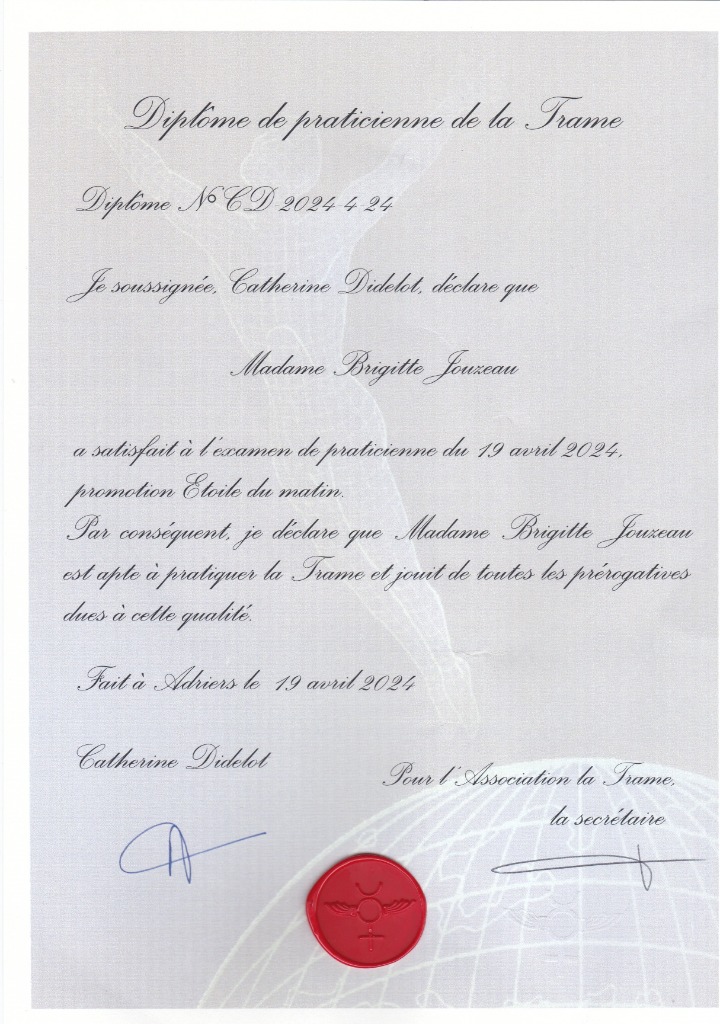 Diplôme de praticienne de la Trame
Diplôme N° CD 2024 4 24
Je soussignée, Catherine Didelot, déclare que
Madame Brigitte Jouzeau
a satisfait à l'examen de praticienne du 19 avril 2024,
promotion Etoile du matin.
Par conséquent, je déclare que Madame Brigitte Jouzeau
est apte à pratiquer la Trame et jouit de toutes les prérogatives
dues à cette qualité.
Fait à Adriers le 19 avril 2024
Catherine Didelot
Pour l'Association la Trame,
la secrétaire